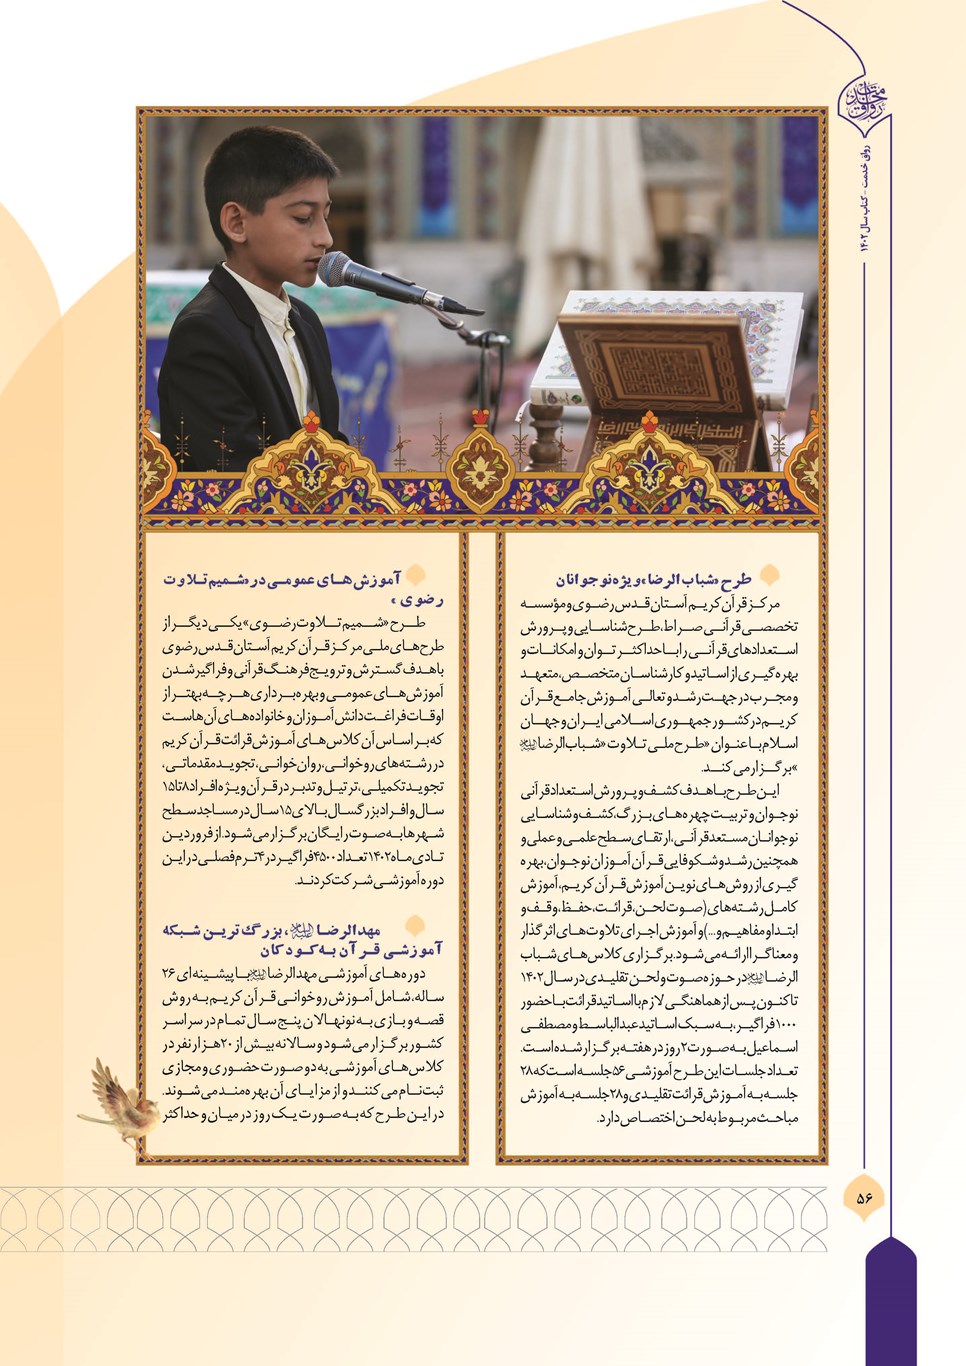 رواق خدمت - کتاب سال ۱۴۰۲
طرح «شباب الرضا» ویژه نوجوانان
مرکز قرآن کریم آستان قدس رضوی و مؤسسه
تخصصی قرآنی صراط، طرح شناسایی و پرورش
استعدادهای قرآنی را با حداکثر توان و امکانات و
بهره گیری از اساتید و کارشناسان متخصص، متعهد
و مجرب در جهت رشد و تعالی آموزش جامع قرآن
کریم در کشور جمهوری اسلامی ایران و جهان
اسلام با عنوان «طرح ملی تلاوت «شباب الرضا
» برگزار می کند.
این طرح با هدف کشف و پرورش استعداد قرآنی
نوجوان و تربیت چهره های بزرگ، کشف و شناسایی
نوجوانان مستعد قرآنی، ارتقای سطح علمی و عملی و
همچنین رشد و شکوفایی قرآن آموزان نوجوان، بهره
گیری از روش های نوین آموزش قرآن کریم، آموزش
کامل رشته های (صوت لحن، قرائت، حفظ، وقف و
ابتدا و مفاهیم و...) و آموزش اجرای تلاوت های اثر گذار
و معناگرا ارائه می شود. برگزاری کلاس های شباب
الرضا در حوزه صوت و لحن تقلیدی در سال ۱۴۰۲
تاکنون پس از هماهنگی لازم با اساتید قرائت با حضور
۱۰۰۰ فراگیر، به سبک اساتید عبدالباسط و مصطفی
اسماعیل به صورت ۲ روز در هفته برگزار شده است.
تعداد جلسات این طرح آموزشی ۵۶ جلسه است که ۲۸
جلسه به آموزش قرائت تقلیدی و ۲۸ جلسه به آموزش
مباحث مربوط به لحن اختصاص دارد.
آموزش های عمومی در «شمیم تلاوت
رضوی »
طرح «شمیم تلاوت رضوی» یکی دیگر از
طرح های ملی مرکز قرآن کریم آستان قدس رضوی
با هدف گسترش و ترویج فرهنگ قرآنی و فراگیر شدن
آموزش های عمومی و بهره برداری هر چه بهتر از
اوقات فراغت دانش آموزان و خانواده های آن هاست
که بر اساس آن کلاس های آموزش قرائت قرآن کریم
در رشته های روخوانی، روان خوانی، تجوید مقدماتی،
تجوید تکمیلی، ترتیل و تدبر در قرآن ویژه افراد ۸ تا ۱۵
سال و افراد بزرگسال بالای ۱۵ سال در مساجد سطح
شهرها به صوت رایگان برگزار می شود. از فروردین
تا دی ماه ۱۴۰۲ تعداد ۴۵۰۰ فراگیر در ۴ ترم فصلی در این
دوره آموزشی شرکت کردند.
مهدالرضا ، بزرگ ترین شبکه
آموزشی قرآن به کودکان
دوره های آموزشی مهدالرضا با پیشینه ای ۲۶
ساله، شامل آموزش روخوانی قرآن کریم به روش
قصه و بازی به نونهالان پنج سال تمام در سراسر
کشور برگزار می شود و سالانه بیش از ۲۰ هزار نفر در
کلاس های آموزشی به دو صورت حضوری و مجازی
ثبت نام می کنند و از مزایای آن بهره مند می شوند.
در این طرح که به صورت یک روز در میان و حداکثر
۵۶